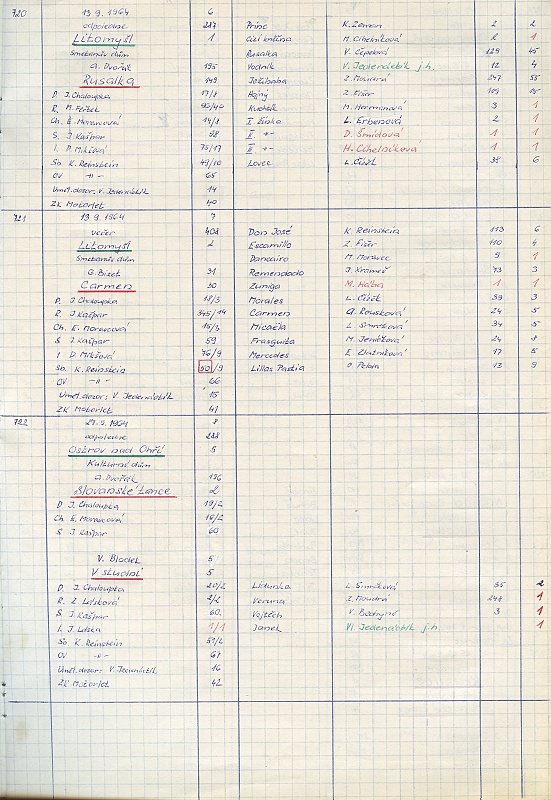 720 13.9.1964 6
odpoledne 287 Princ K. Zeman 2 2
Litomyšl 1 Cizí kněžna M. Cihelníková 2 1
Smetanův dům Rusalka V. Čepelová 129 45
A. Dvořák 195 Vodník V. Jedenáctík j.h. 12 4
Rusalka 149 Ježibaba Z. Moudrá 247 55
D. J. Chaloupka 17/8 Hajný Z. Fišer 109
R. M. Fričer 90/40 Kuchtík M. Hermanová 3 1
Ch. E. Moravcová 14/8 I žínka L. Erbenová 2 1
S. J. Kašpar 58 II -"- D. Šmídová 1 1
I. D. Mikšová 75/17 III -"- H. Cihelníková 1 1
Sb. K. Reinstein 49/10 Lovec L. Čížek 38 6
OV -"- 65
Uměl. dozor: V. Jedenáctík 14
ZK Motorlet 40
721 13.9.1964 7
večer 408 Don José K. Reinstein 113 6
Litomyšl 2 Escamillo Z. Fišer 110 4
Smetanův dům Dancairo M. Moravec 9 1
G. Bizet 31 Remendado J. Krameš 73 3
Carmen 30 Zuniga M. Hatba 1 1
D. J. Chaloupka 18/3 Morales L. Čížek 39 3
R. J. Kašpar 345/14 Carmen A. Rousková 24 5
Ch. E. Moravcová 15/3 Micaëla L. Šimíčková 34 5
S J. Kašpar 59 Frasquita M. Jeníčková 24 8
I D. Mikšová 76/9 Mercedes E. Zlatníková 17 5
Sb. K. Reinstein 50/9 Lillas Pastia O. Pelda 13 9
OV -"- 66
Uměl. dozor: V. Jedenáctík 15
ZK Motorlet 41
722 27.9.1964 8
odpoledne 288
Ostrov nad Ohří 5
Kulturní dům
A. Dvořák 196
Slovanské tance 2
D. J. Chaloupka 19/2
Ch. E. Moravcová 16/2
S J. Kašpar 60
V. Blodek 5
V studni 5
D. J. Chaloupka 20/2 Lidunka L. Šimíčková 35 2
R. L. Lišková 2/2 Veruna Z. Moudrá 248 1
S J. Kašpar 60 Vojtěch V. Bednář 3 1
I. J. Liška 1/1 Janek Vl. Jedenáctík j.h. 1
Sb. K. Reinstein 51/2
OV -"- 67
Uměl. dozor: V. Jedenáctík 16
ZK Motorlet 42